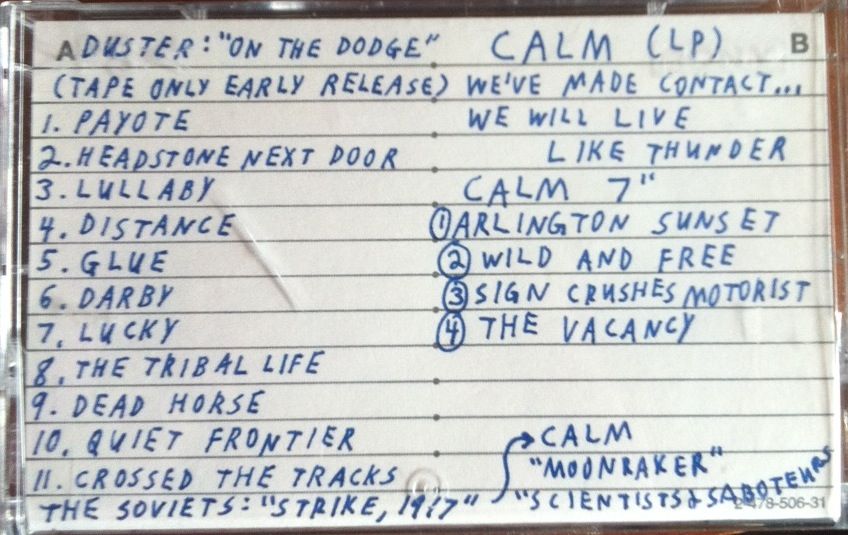 A DUSTER: "ON THE DODGE"
(TAPE ONLY EARLY RELEASE)
1. PAYOTE
2. HEADSTONE NEXT DOOR
3. LULLABY
4. DISTANCE
5. GLUE
6. DARBY
7. LUCKY
8. THE TRIBAL LIFE
9. DEAD HORSE
10. QUIET FRONTIER
11. CROSSED THE TRACKS
THE SOVIETS: "STRIKE, 1917"
CALM (LP) B
WE'VE MADE CONTACT...
WE WILL LIVE
LIKE THUNDER
CALM 7"
1 ARLINGTON SUNSET
2 WILD AND FREE
3 SIGN CRUSHES MOTORIST
4 THE VACANCY
CALM
"MOONRAKER"
"SCIENTISTS & SABOTEURS
2-478-506-31